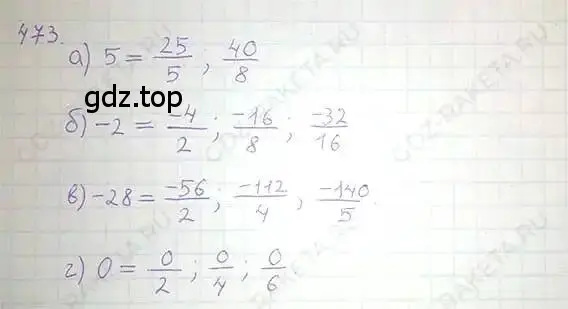 473.
а) 5 = 25/5 ; 40/8
gdz.top
б) -2 = -4/2 ; -16/8 ; -32/16
в) -28 = -56/2 ; -112/4 ; -140/5.
г) 0 = 0/2 ; 0/4 ; 0/6